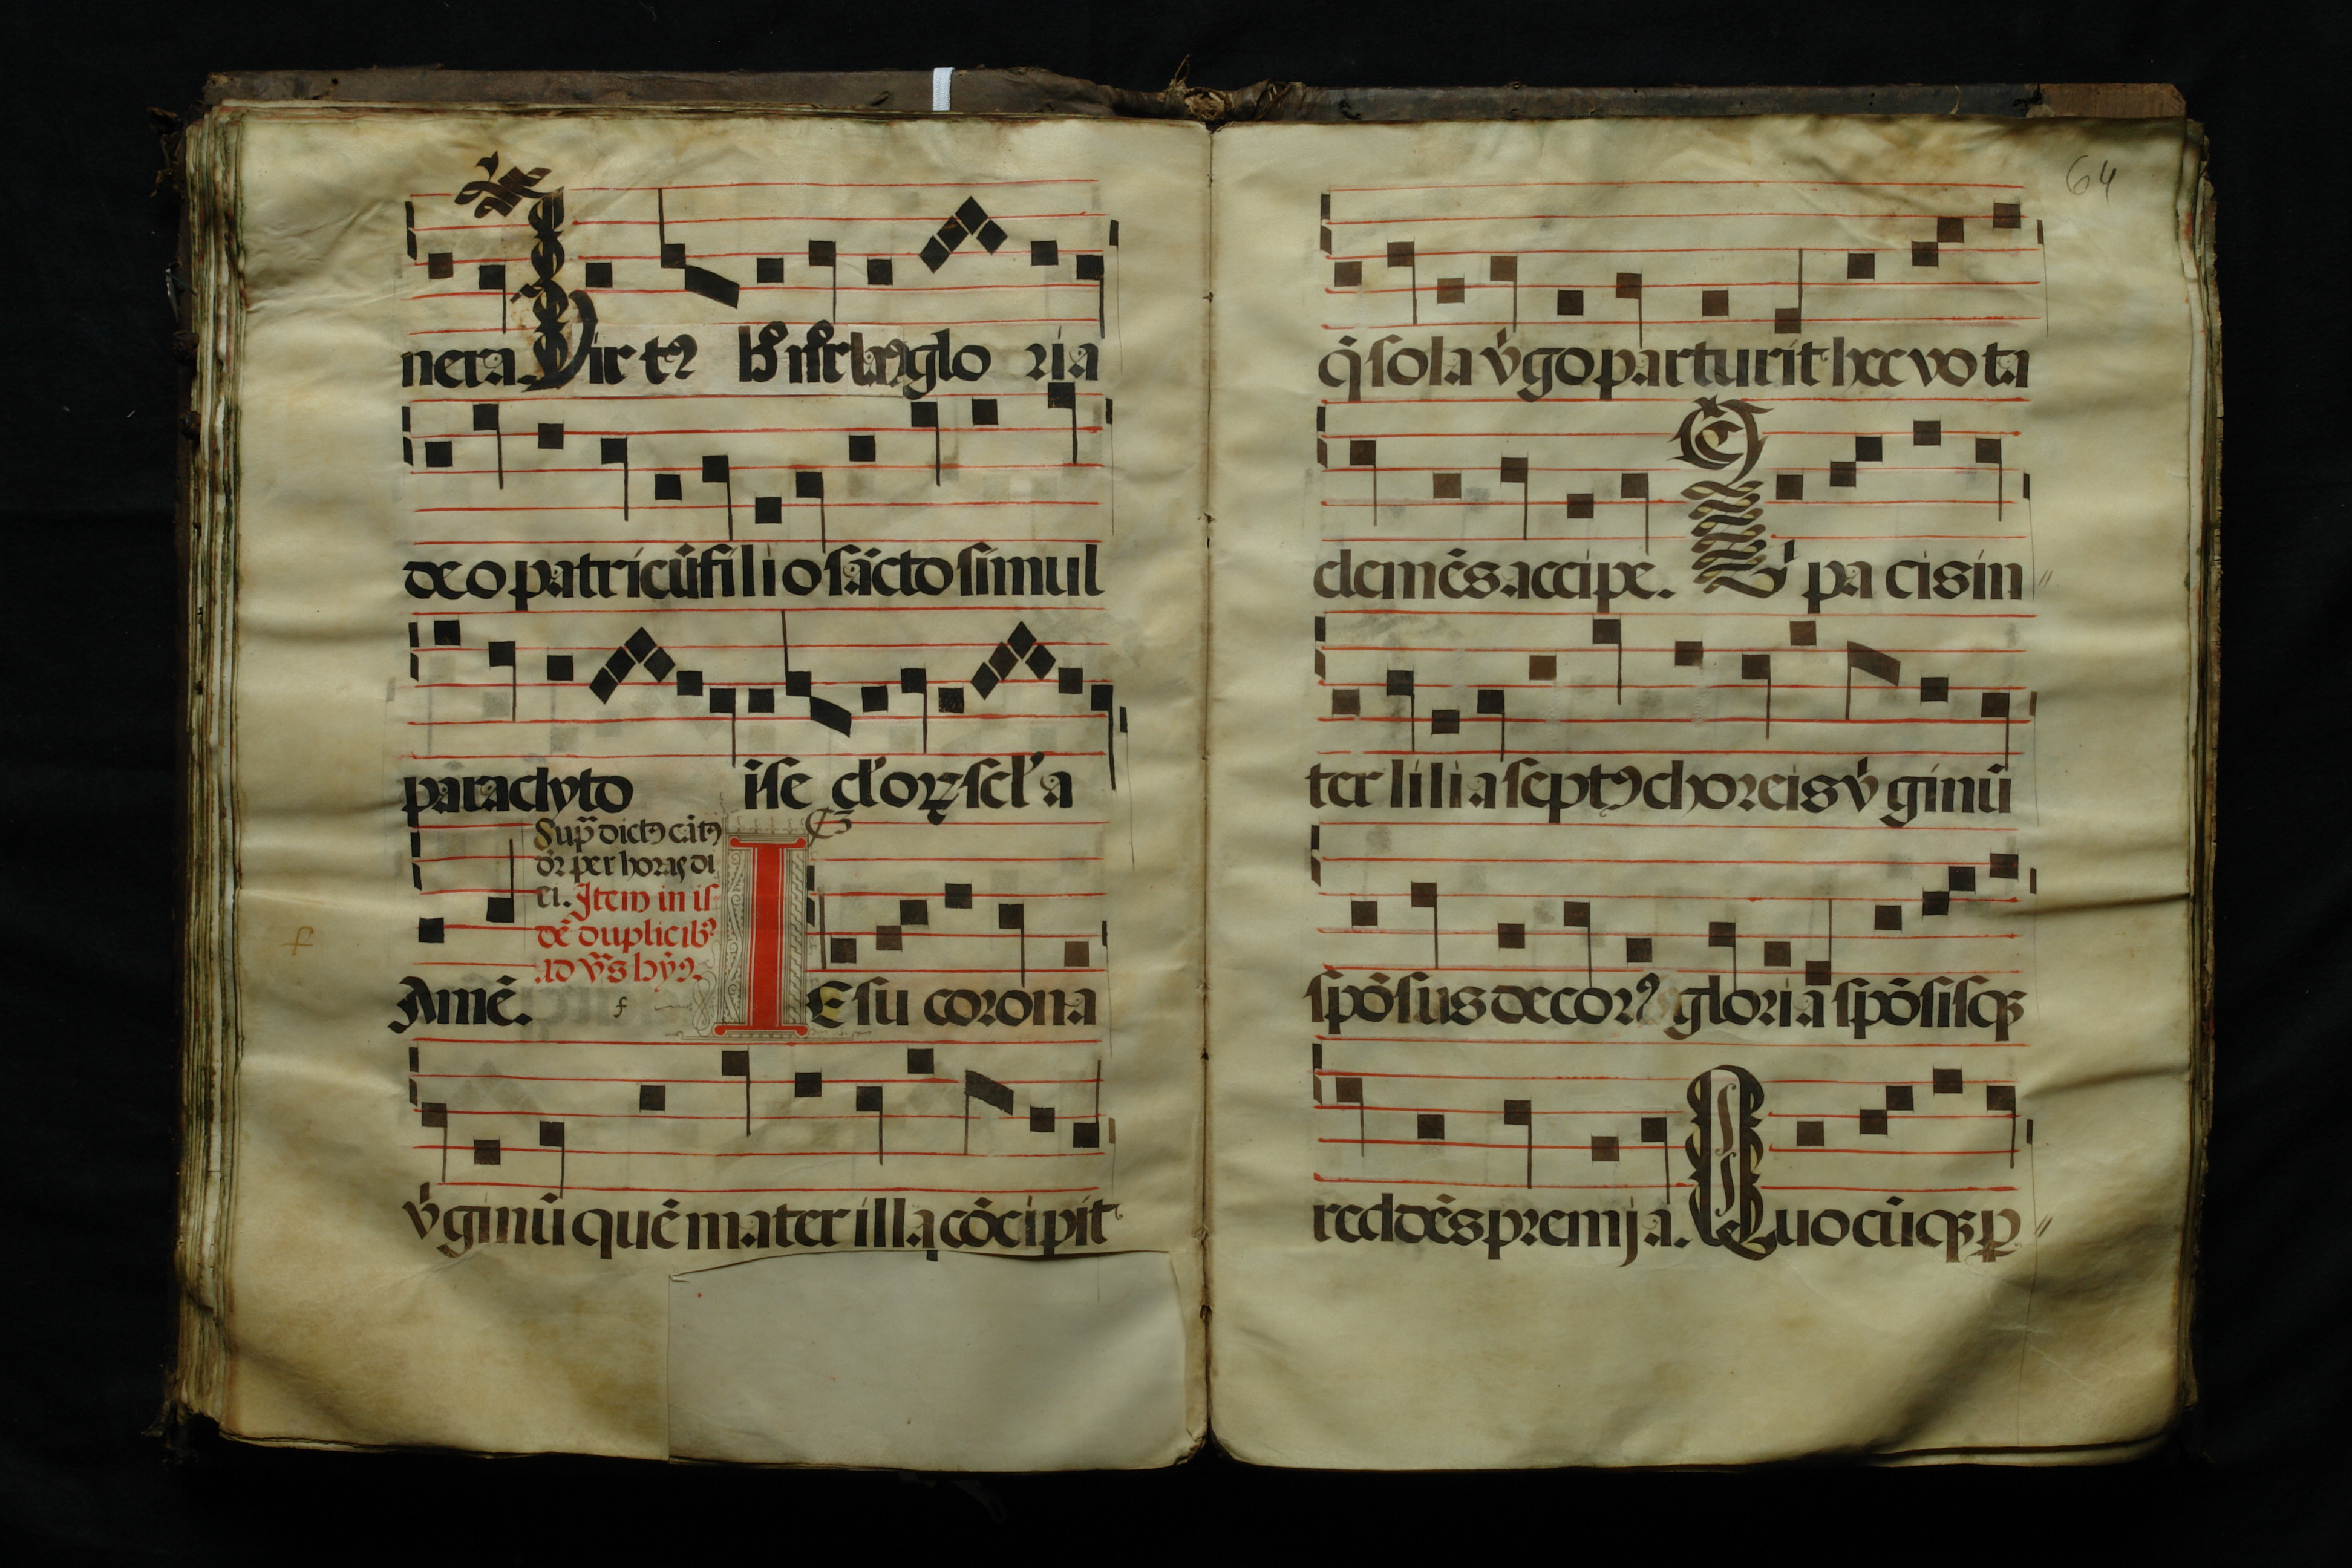 nera. Virt⁹ glo ria
deo patri cū̃ filio sācto simul
paraclyto ī se cl'oꝝ scl'a
Sup̄ dict⁹ cāt⁹
d̄r per horas di
ci. Item in is
dē duplicib⁹
ad v̄s hȳ⁹.
Amē. f IEsu corona
v̓ginū quē mater illa cōcipit
f
64
q̄ sola v̓go parturit hec vota
clemēs accipe. Q̓ pa cis in
ter lilia sept⁹ choreis v̓ginū
spōsus decor⁹ gloria spōsisqꝫ
reddēs premja. Quocūqꝫ ꝑ